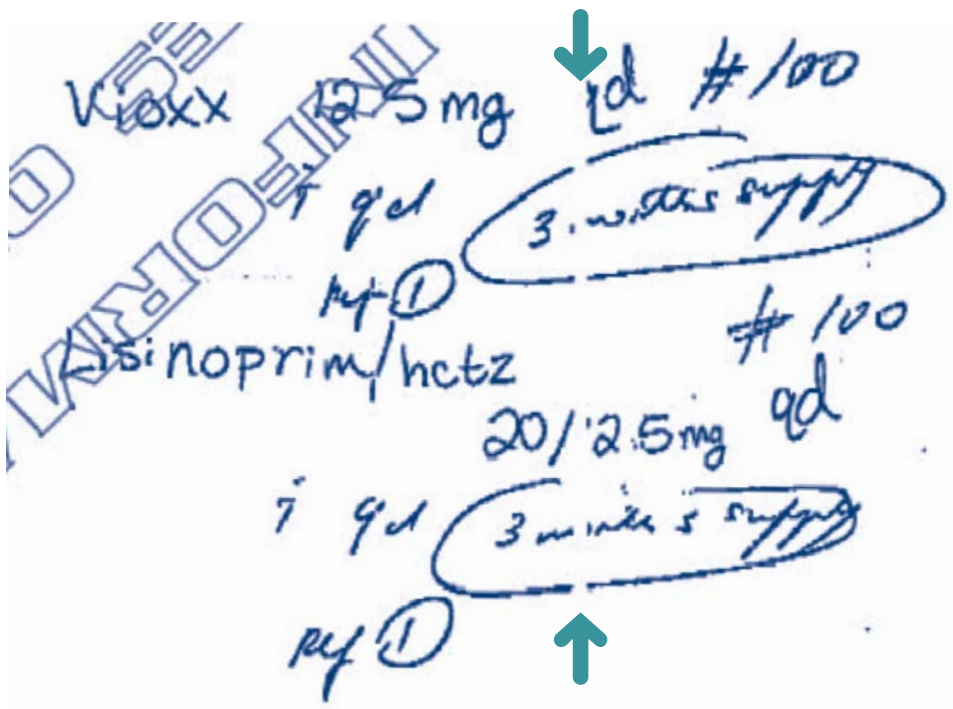 Vioxx 12.5 mg qd #100
i qd 3 months supply
Ref 1
Lisinoprim/hctz #100
20/12.5 mg qd
i qd 3 months supply
Ref 1